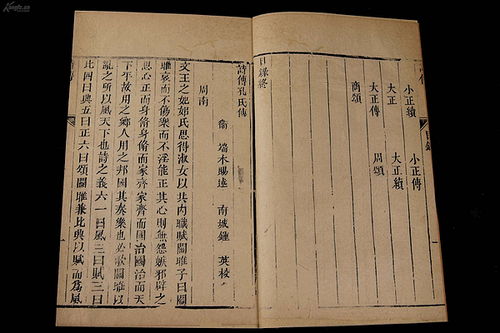 小正續　小正傳
大正　大正續
大正傳　周頌
商頌
目錄終
詩傳孔氏傳
衞　端木賜述　南城鍾　英校
周南
文王之妃姒氏思得淑女以共内職賦關雎子曰關
雎哀而不傷樂而不淫能正其心則無怨嫉邪辟之
思心正而身脩身脩而家齊家齊而國治國治而天
下平故用之鄉人用之邦國其奏樂也必歌關雎以
亂之所以風天下也詩之義六一曰風二曰賦三曰
比四曰興五曰正六曰頌關雎兼比興以賦而爲風